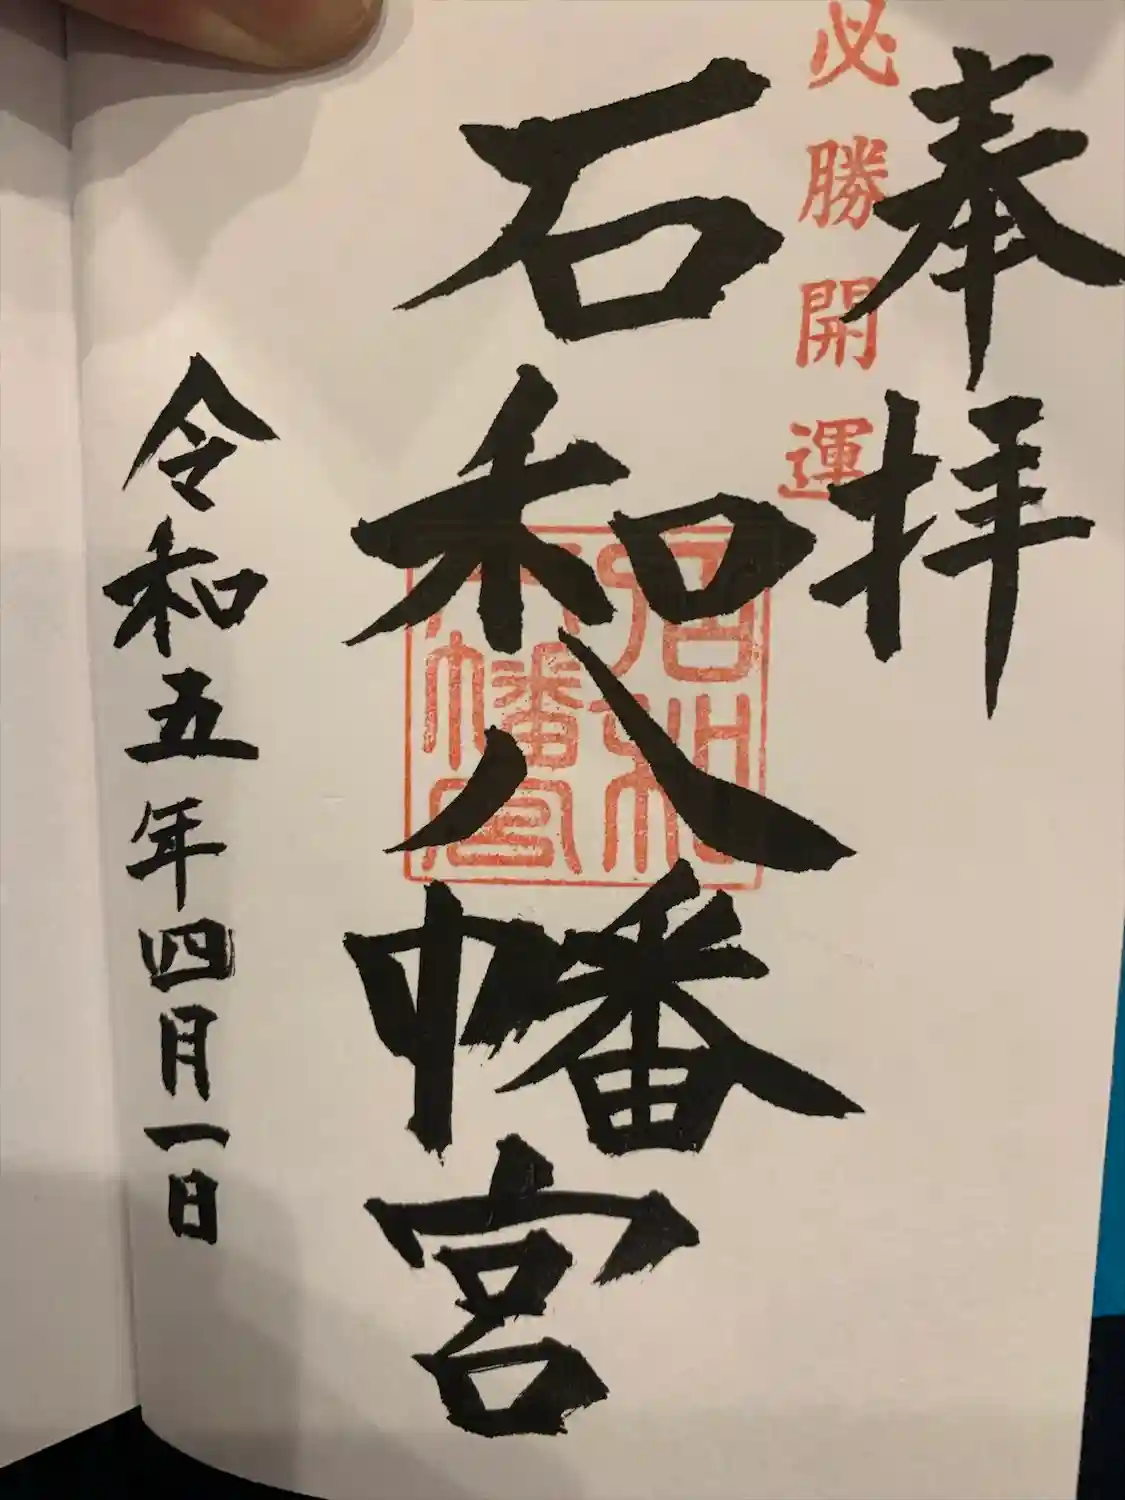 奉拝
必勝開運
石和八幡宮
石和
八幡宮
令和五年四月一日